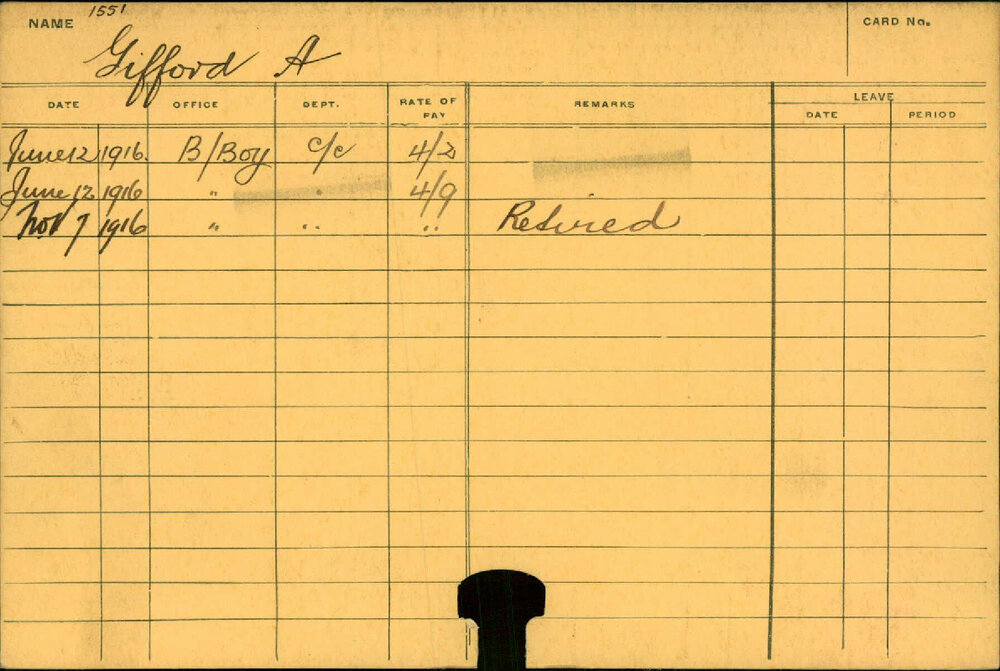 NAME 1551 CARD No.
Gifford A
DATE OFFICE DEPT. RATE OF PAY REMARKS LEAVE
DATE PERIOD
June 12 1916. B/Boy C/c 4/2
June 12 1916 " " 4/9
Nov 7 1916 " " " Retired